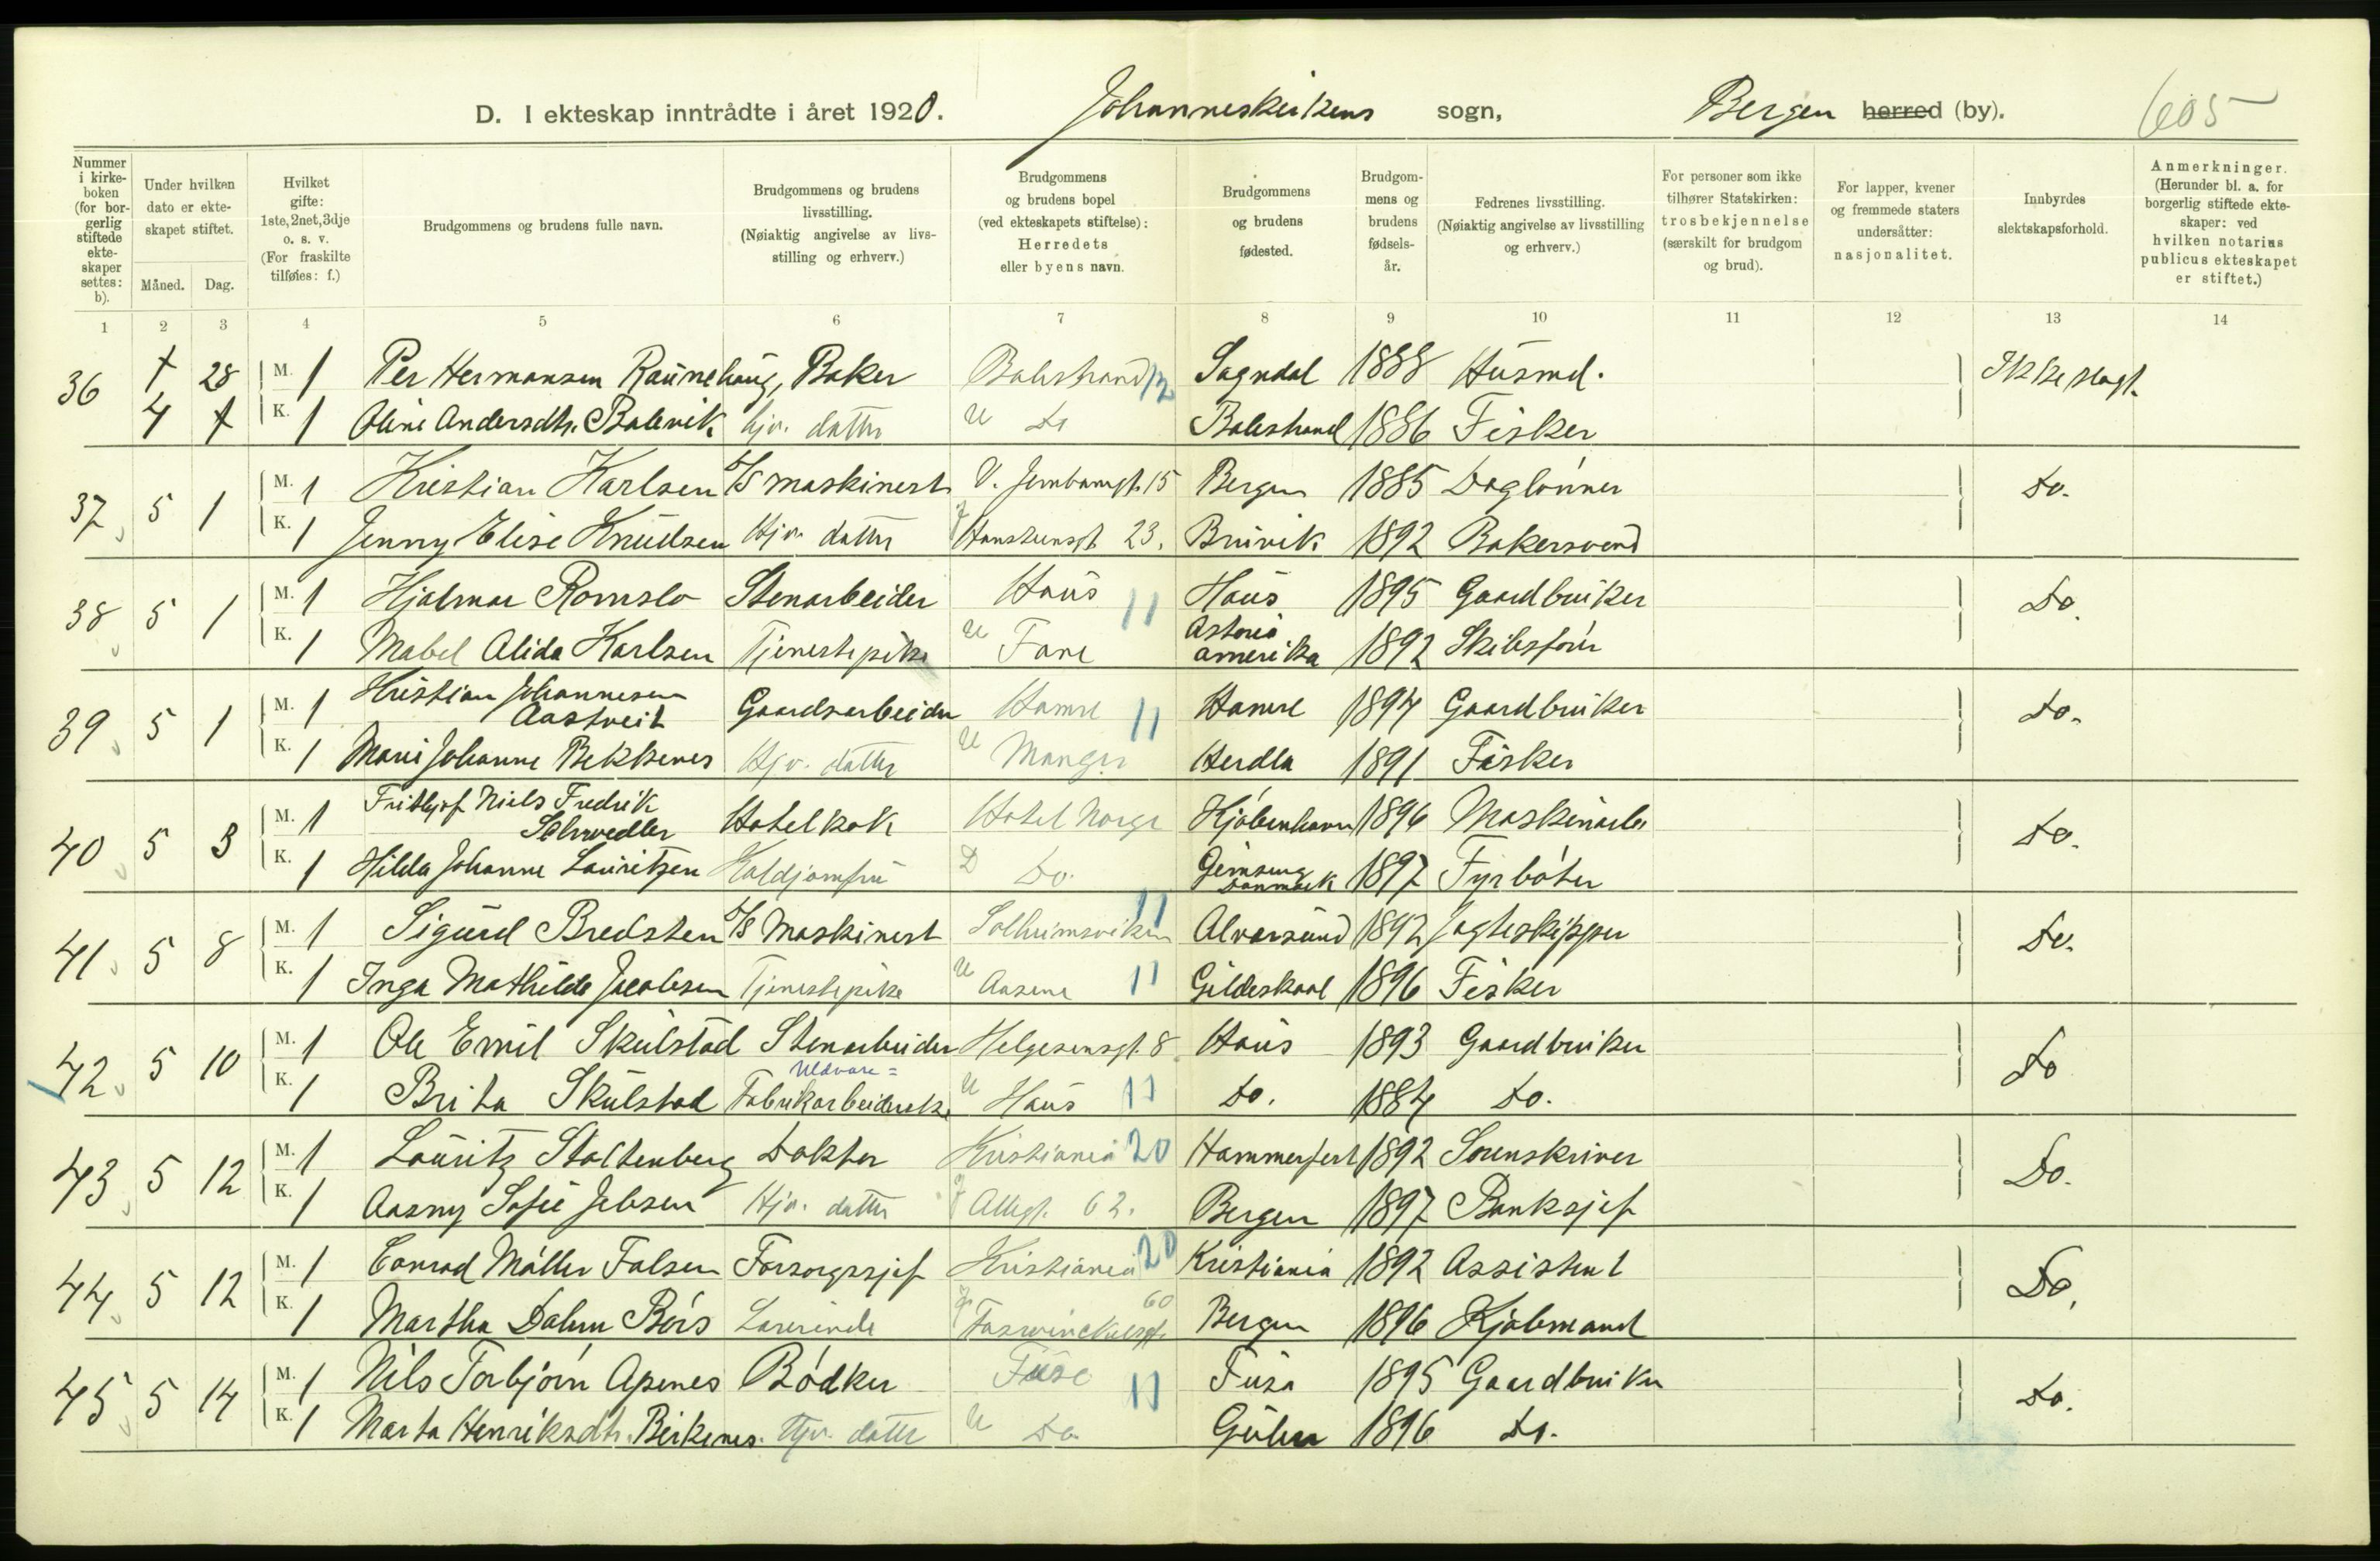 D. I ekteskap inntrådte i året 1920. Johanneskirkens sogn, Bergen herred (by). 605
Nummer i kirkeboken (for borgerlig stiftede ekteskaper settes: b).
Under hvilken dato er ekteskapet stiftet.
Måned. Dag.
Hvilket gifte: 1ste, 2net, 3dje o. s. v. (For fraskilte tilføies: f.)
Brudgommens og brudens fulle navn.
Brudgommens og brudens livsstilling. (Nøiaktig angivelse av livsstilling og erhverv.)
Brudgommens og brudens bopel (ved ekteskapets stiftelse): Herredets eller byens navn.
Brudgommens og brudens fødested.
Brudgommens og brudens fødselsår.
Fedrenes livsstilling. (Nøiaktig angivelse av livsstilling og erhverv.)
For personer som ikke tilhører Statskirken: trosbekjennelse (særskilt for brudgom og brud).
For lapper, kvener og fremmede staters undersåtter: nasjonalitet.
Innbyrdes slektskapsforhold.
Anmerkninger. (Herunder bl. a. for borgerlig stiftede ekteskaper: ved hvilken notarius publicus ekteskapet er stiftet.)
1 2 3 4 5 6 7 8 9 10 11 12 13 14
36 4 28 M. 1 Per Hermansen Raunehaug, Baker Balestrand 12 Sogndal 1888 Husmd. Ikke slegt.
K. 1 Oline Andersdtr. Balevik hjv. datter U Do Balestrand 1886 Fisker
37 5 1 M. 1 Kristian Karlsen b/s maskinist V. Jernbanegt. 15 Bergen 1885 Daglönner Do.
K. 1 Jenny Elise Knudsen Hjv. datter Hansteensgt. 23. Bruvik 1892 Bakersvend
38 5 1 M. 1 Hjalmar Romslo Stenarbeider Haus 11 Haus 1895 Gaardbruker Do.
K. 1 Mabel Alida Karlsen Tjenestepike U Fane Astoria Amerika 1892 Skibsförer
39 5 1 M. 1 Kristian Johannesen Aastveit Gaardsarbeider Hamre 11 Hamre 1894 Gaardbruker Do.
K. 1 Marie Johanne Bekkenes Hjv. datter U Manger Herdla 1891 Fisker
40 5 3 M. 1 Frithjof Niels Fredrik Schwedler Hotelkok Hotel Norge Kjöbenhavn 1896 Maskinarb. Do.
K. 1 Hilda Johanne Lauritzen Koldjomfru D Do. Danmark 1897 Fyrböter
41 5 8 M. 1 Sigurd Bredsten b/s Maskinist Solheimsviken 11 Alversund 1892 Jagteskipper Do.
K. 1 Inga Mathilde Jacobsen Tjenestepike U Aasene 11 Gildeskaal 1896 Fisker
42 5 10 M. 1 Ole Emil Skulstad Stenarbeider Helgesensgt. 8 Haus 1893 Gaardbruker Do
K. 1 Brita Skulstad Uldvare= Fabrikarbeiderske U Haus 11 Do. 1884 Do.
43 5 12 M. 1 Lauritz Stoltenberg Doktor Kristiania 20 Hammerfest 1892 Sorenskriver Do.
K. 1 Aasny Sofie Jebsen Hjv. datter Allegt. 62. Bergen 1897 Banksjef
44 5 12 M. 1 Conrad Möller Falsen Forsorgssjef Kristiania 20 Kristiania 1892 Assistent Do.
K. 1 Martha Dahm Börs Lærerinde Foswinckelsgt. 60 Bergen 1896 Kjöbmand
45 5 14 M. 1 Nils Torbjörn Apenes Bödker Fuse 11 Fusa 1895 Gaardbruker Do.
K. 1 Marta Henriksdtr. Birkenes. Hjv. datter U Do. Gulen 1896 Do.